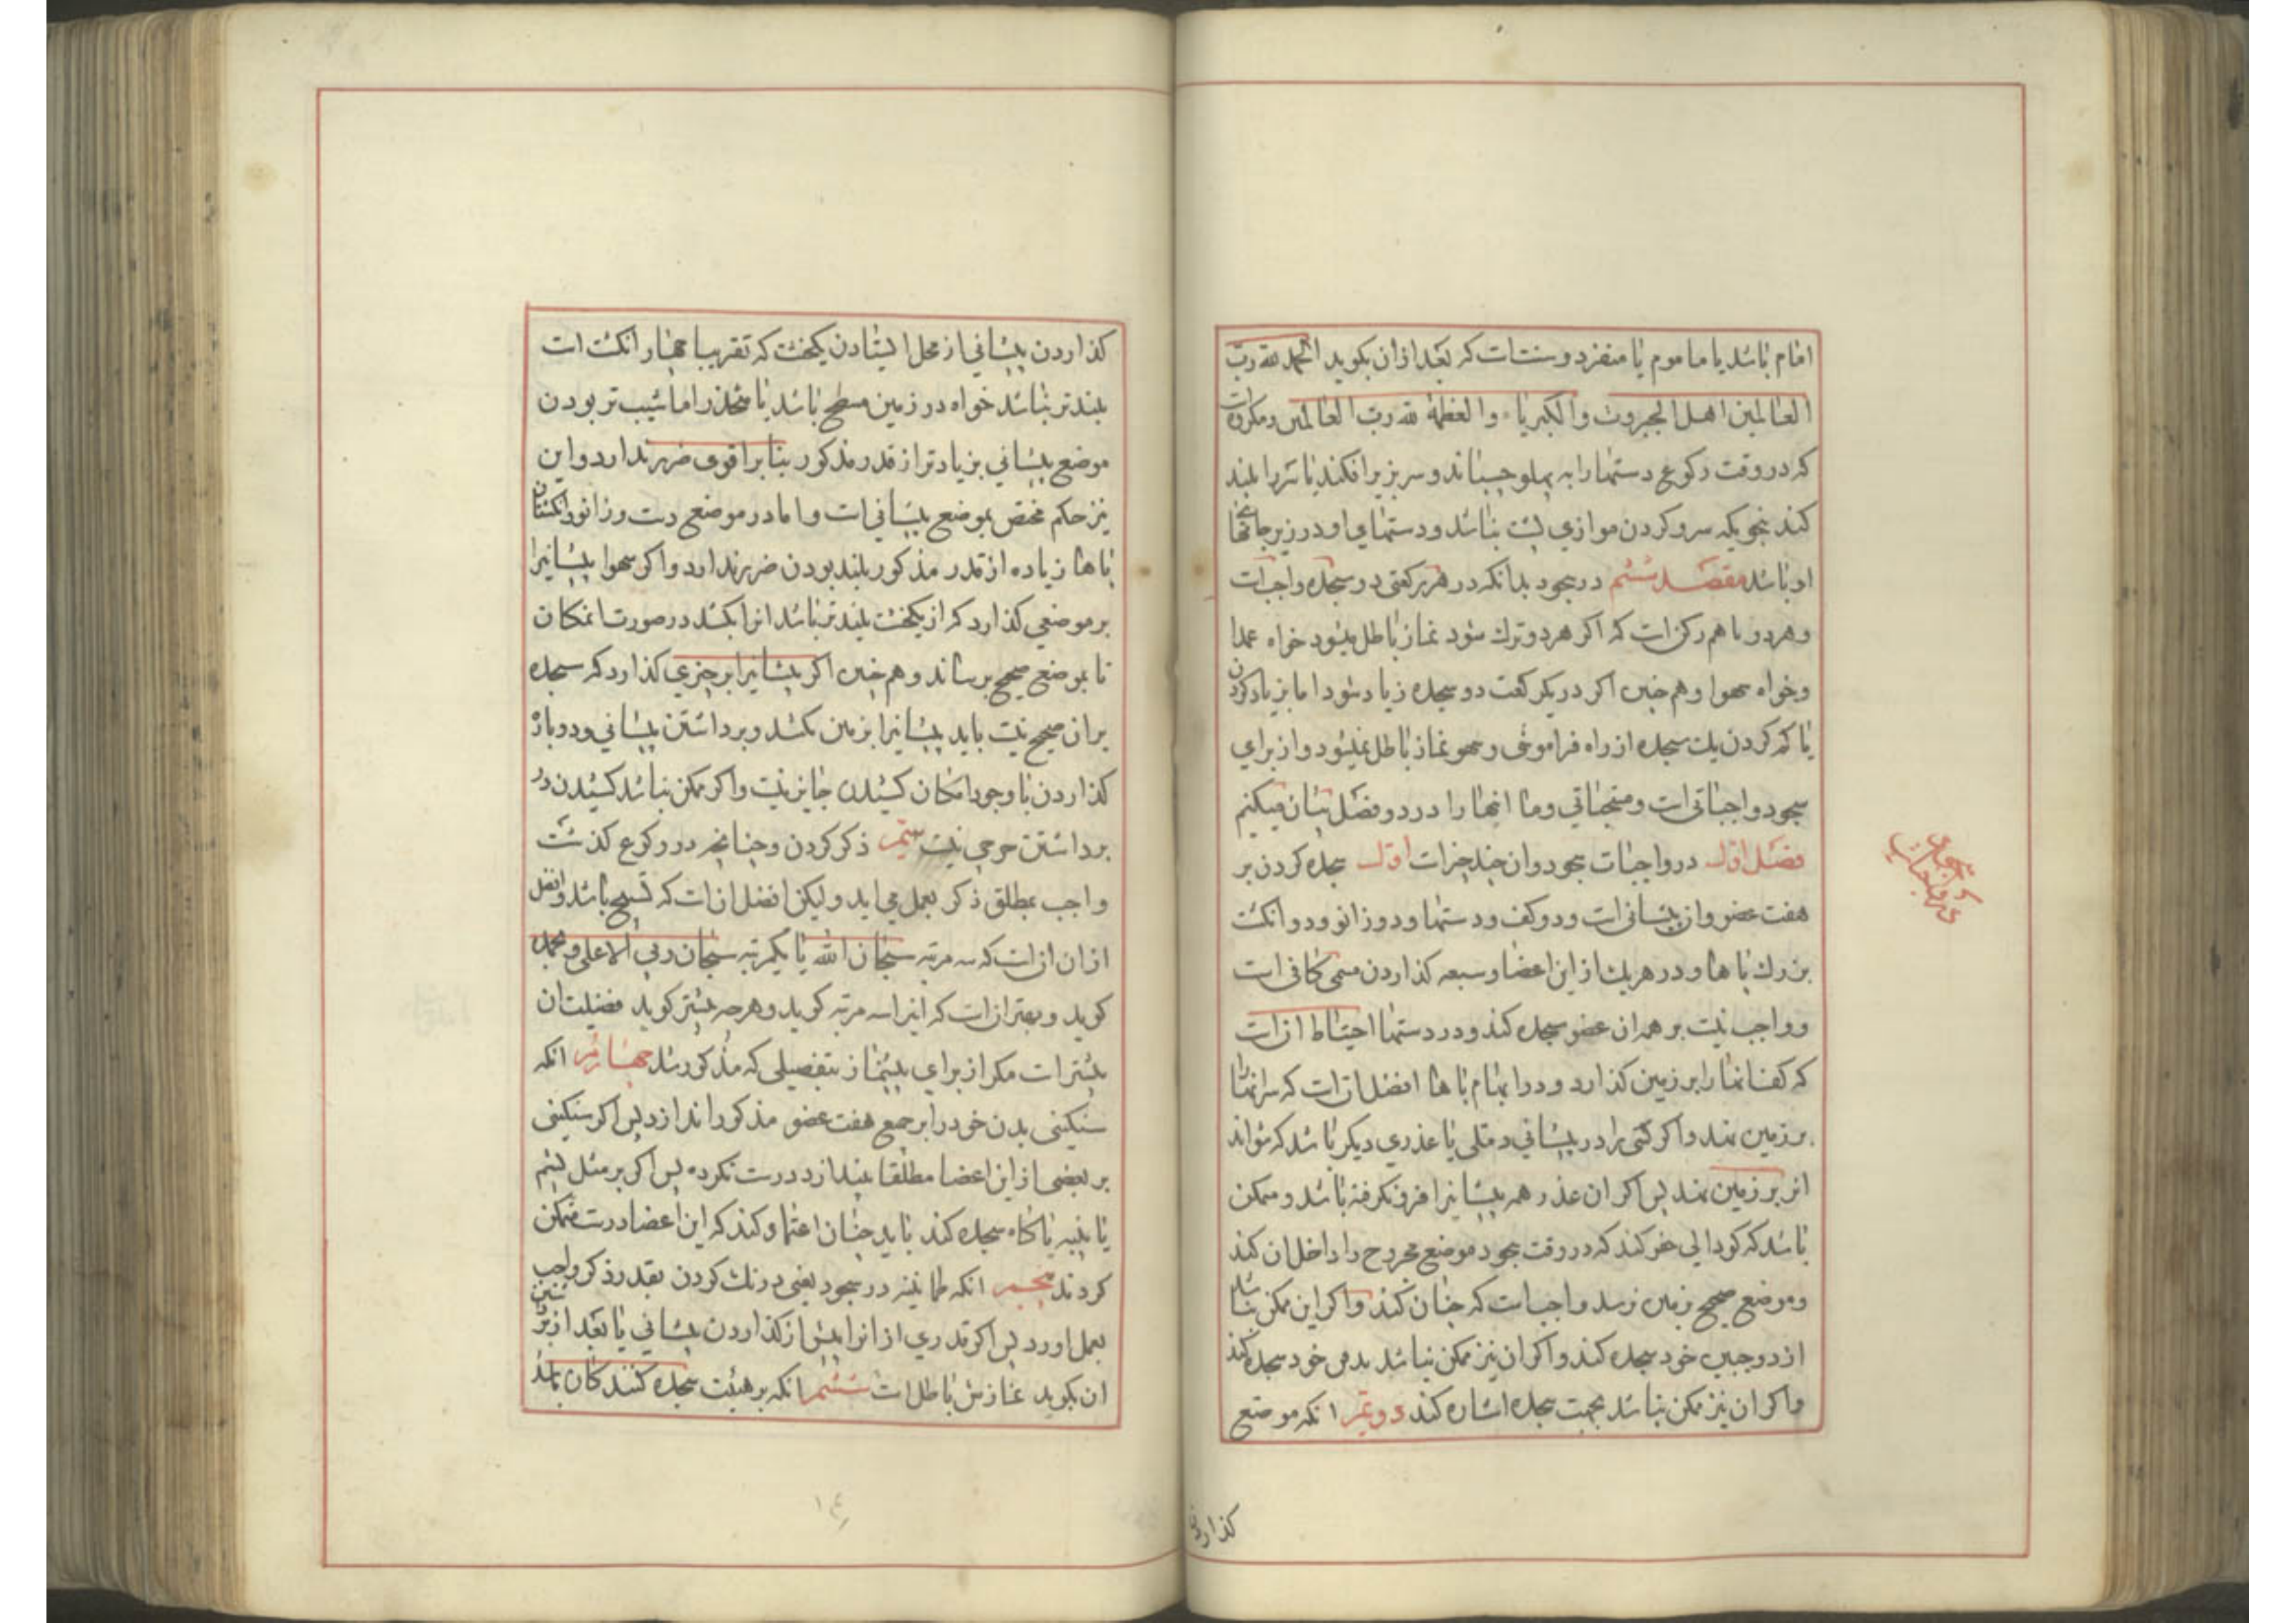 امام باشد یا ماموم یا منفرد و سنتست که بعد ازان بکوید الحمد لله رب
العالمین اهل الجبروت والکبریاء والعظمة لله رب العالمین و مکروهست
که در وقت رکوع دستها را به پهلو چسباند و سر بزیر افکند یا سر را بلند
کند بنحویکه سر و کردن موازی پشت نباشد و دستهای او در زیر جامهای
او باشد مقصد ششم در سجود بدانکه در هر رکعتی دو سجده واجبست
و هر دو با هم رکنست که اکر هر دو ترک شود نماز باطل میشود خواه عمدا
و خواه سهوا و هم چنین اکر در یکرکعت دو سجده زیاد شود اما بزیاد کردن
یا کم کردن یک سجده از راه فراموشی و سهو نماز باطل نمیشود و از برای
سجود واجباتی است و مستحباتی و ما اینها را در دو فصل بیان میکنیم
فصل اول در واجبات سجود و ان چند چیز است اول سجده کردن بر
هفت عضو و ان پیشانی است و دو کف دستها و دو زانو و دو انکشت
بزرک پاها و در هر یک از این اعضاء سبعه کذاردن مسمی کافی است
و واجب نیست بر همه ان عضو سجده کند و در دستها احتیاط انست
که کفانها را بر زمین کذارد و در ابهام پاها افضل انست که سر انها را
بر زمین نهد و اکر کسی را در پیشانی دملی یا عذری دیکر باشد که نتواند
انرا بر زمین نهد پس اکر ان عذر همه پیشانیرا فرو نکرفته باشد و ممکن
باشد که کودالی حفر کند که در وقت سجود موضع مجروح را داخل ان کند
و موضع صحیح بزمین رسد واجبست که چنان کند و اکر این ممکن نباشد
از دو جبین خود سجده کند و اکر ان نیز ممکن نباشد بذقن خود سجده کند
و اکر ان نیز ممکن نباشد بجهت سجده اشاره کند دویم انکه موضع
کذاردن
کذاردن پیشانی از محل ایستادن یکخشت که تقریبا چهار انکشت است
بلندتر نباشد خواه در زمین مسطح باشد یا منحدر اما شیب تر بودن
موضع پیشانی بزیادتر از قدر مذکور بنابر اقوی ضرر ندارد و این
نیز حکم مختص بموضع پیشانی است و اما در موضع دست و زانو و انکشتان
پاها زیاده از قدر مذکور بلند بودن ضرر ندارد و اکر سهوا پیشانیرا
بر موضعی کذارد که از یکخشت بلندتر باشد انرا بکشد در صورت امکان
تا بموضع صحیح برساند و هم چنین اکر پیشانیرا بر چیزی کذارد که سجده
بران صحیح نیست باید پیشانیرا بزمین بکشد و برداشتن پیشانی و دوباره
کذاردن با وجود امکان کشیدن جایز نیست و اکر ممکن نباشد کشیدن در
برداشتن حرجی نیست سیم ذکر کردن و چنانچه در رکوع کذشت
واجب بمطلق ذکر بعمل می اید و لیکن افضل انست که تسبیح باشد و افضل
از ان انست که سه مرتبه سبحان الله یا یکمرتبه سبحان ربی الاعلی و بحمده
کوید و بهتر انست که انرا سه مرتبه کوید و هر چه بیشتر کوید فضیلت ان
بیشتر است مکر از برای پیشنماز بتفصیلی که مذکور شد چهارم انکه
سنکینی بدن خود را بر جمیع هفت عضو مذکور اندازد پس اکر سنکینی
بر بعضی از این اعضا مطلقا نیندازد درست نکرده پس اکر بر مثل پشم
یا پنبه یا کاه سجده کند باید چنان اعتماد کند که این اعضا درست متمکن
کردند پنجم انکه طمانینه در سجود یعنی درنک کردن بقدر ذکر واجب
بعمل اورد پس اکر قدری از انرا پیش از کذاردن پیشانی یا بعد از برداشتن
ان بکوید نمازش باطل است ششم انکه بر هیئت سجده کنندکان بماند